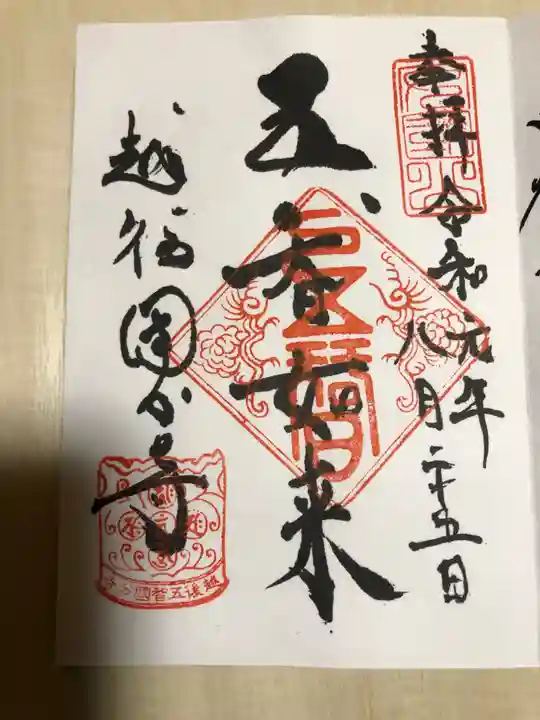 奉拝 令和元年
八月二十五日
五智如来
越後国分寺
越後五智國分寺